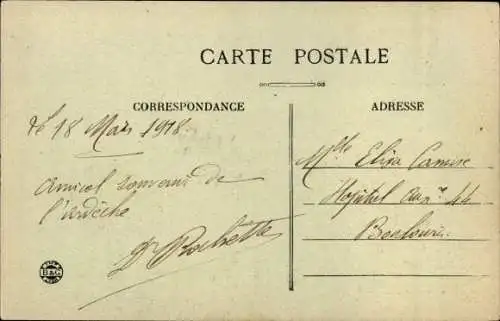 CARTE POSTALE
CORRESPONDANCE
ADRESSE
le 18 Mars 1918
Amical souvenir de
l'ardèche
Dr Rochette
Mlle Elisa Camuse
Hôpital Aux.re 44
B&G